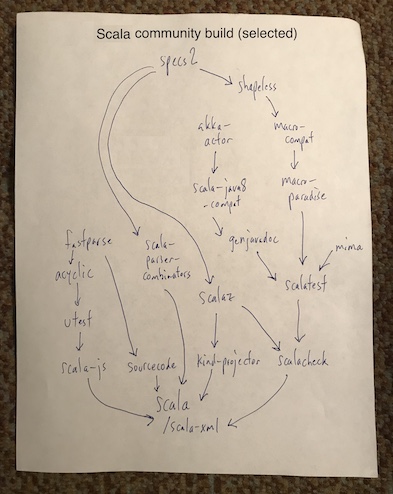 Scala community build (selected)
specs2
shapeless
akka-
actor
macro-
compat
scala-java8
-compat
macro-
paradise
fastparse
scala-
parser-
combinators
genjavadoc
mima
acyclic
scalaz
scalatest
utest
scala-js
sourcecode
kind-projector
scalacheck
scala
/scala-xml